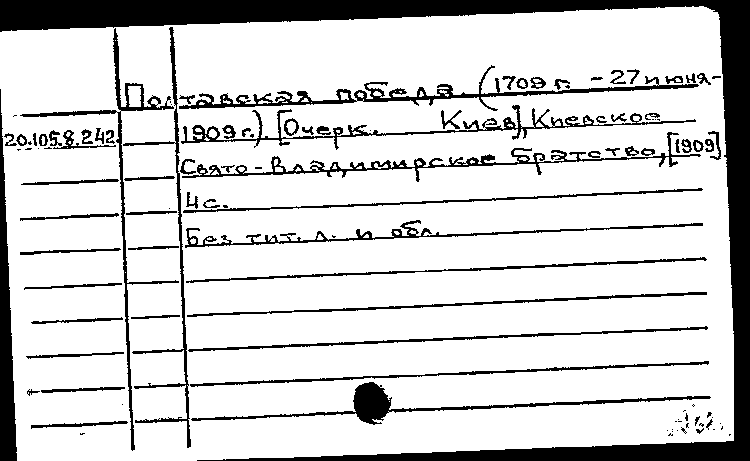 Полтавская победа. (1709 г. - 27 июня -
20.105.8.242 1909 г.) [Очерк. Киев], Киевское
Свято-Владимирское братство, [1909]
4 с.
Без тит. л. и обл.